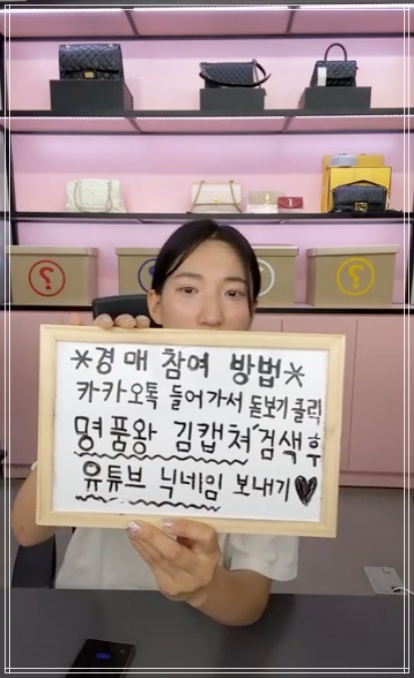 *경매 참여 방법*
카카오톡 들어가서 돋보기 클릭
명품왕 김캡쳐 검색 후
유튜브 닉네임 보내기♥
?
?